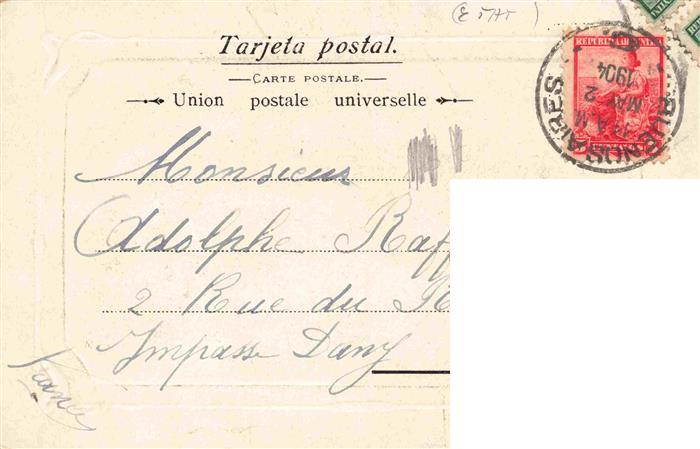 Tarjeta postal.
CARTE POSTALE.
Union postale universelle
REPUBLICA ARGENTINA
BUENOS AIRES
11 A M
MAY 2
1904
Monsieur
Adolphe Raff
2 Rue du R
Impasse Dany
France